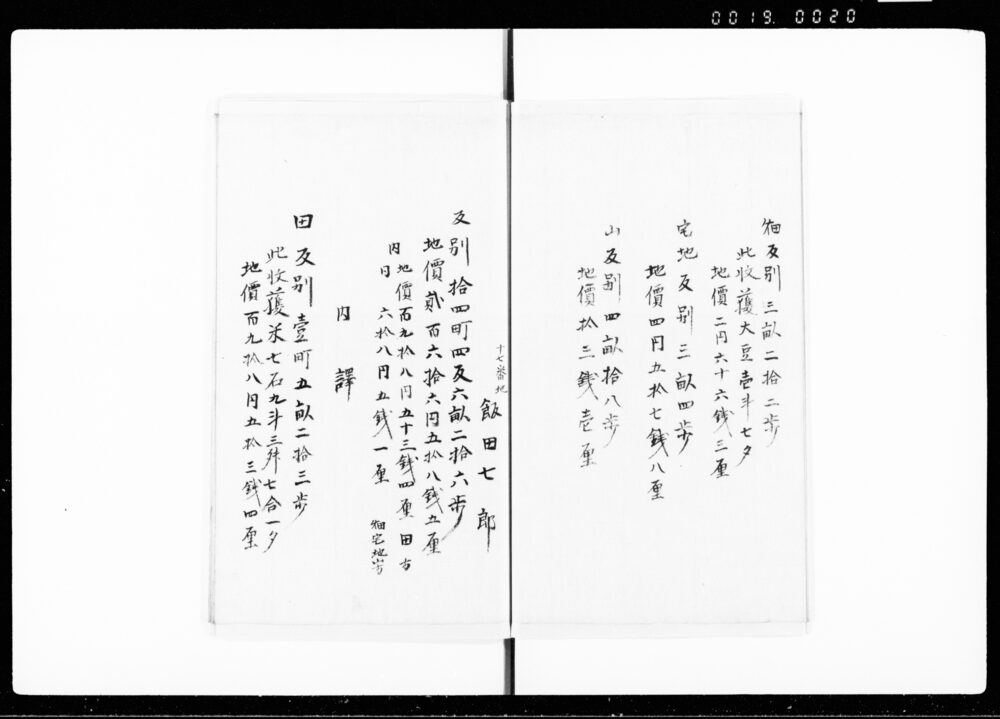 0019. 0020
畑反別三畝二拾二歩
此收穫大豆壱斗七夕
地價二円六十六銭三厘
宅地反別三畝四歩
地價四円五拾七銭八厘
山反別四畝拾八歩
地價拾三銭壱厘
十七番地
飯田七郎
反別拾四町四反六畝二拾六歩
地價貮百六拾六円五拾八銭五厘
内 地價百九拾八円五十三銭四厘 田方
円 六拾八円五銭一厘 畑宅地山方
内譯
田反別壹町五畝二拾三歩
此收穫米七石九斗三舛七合一夕
地價百九拾八円五拾三銭四厘